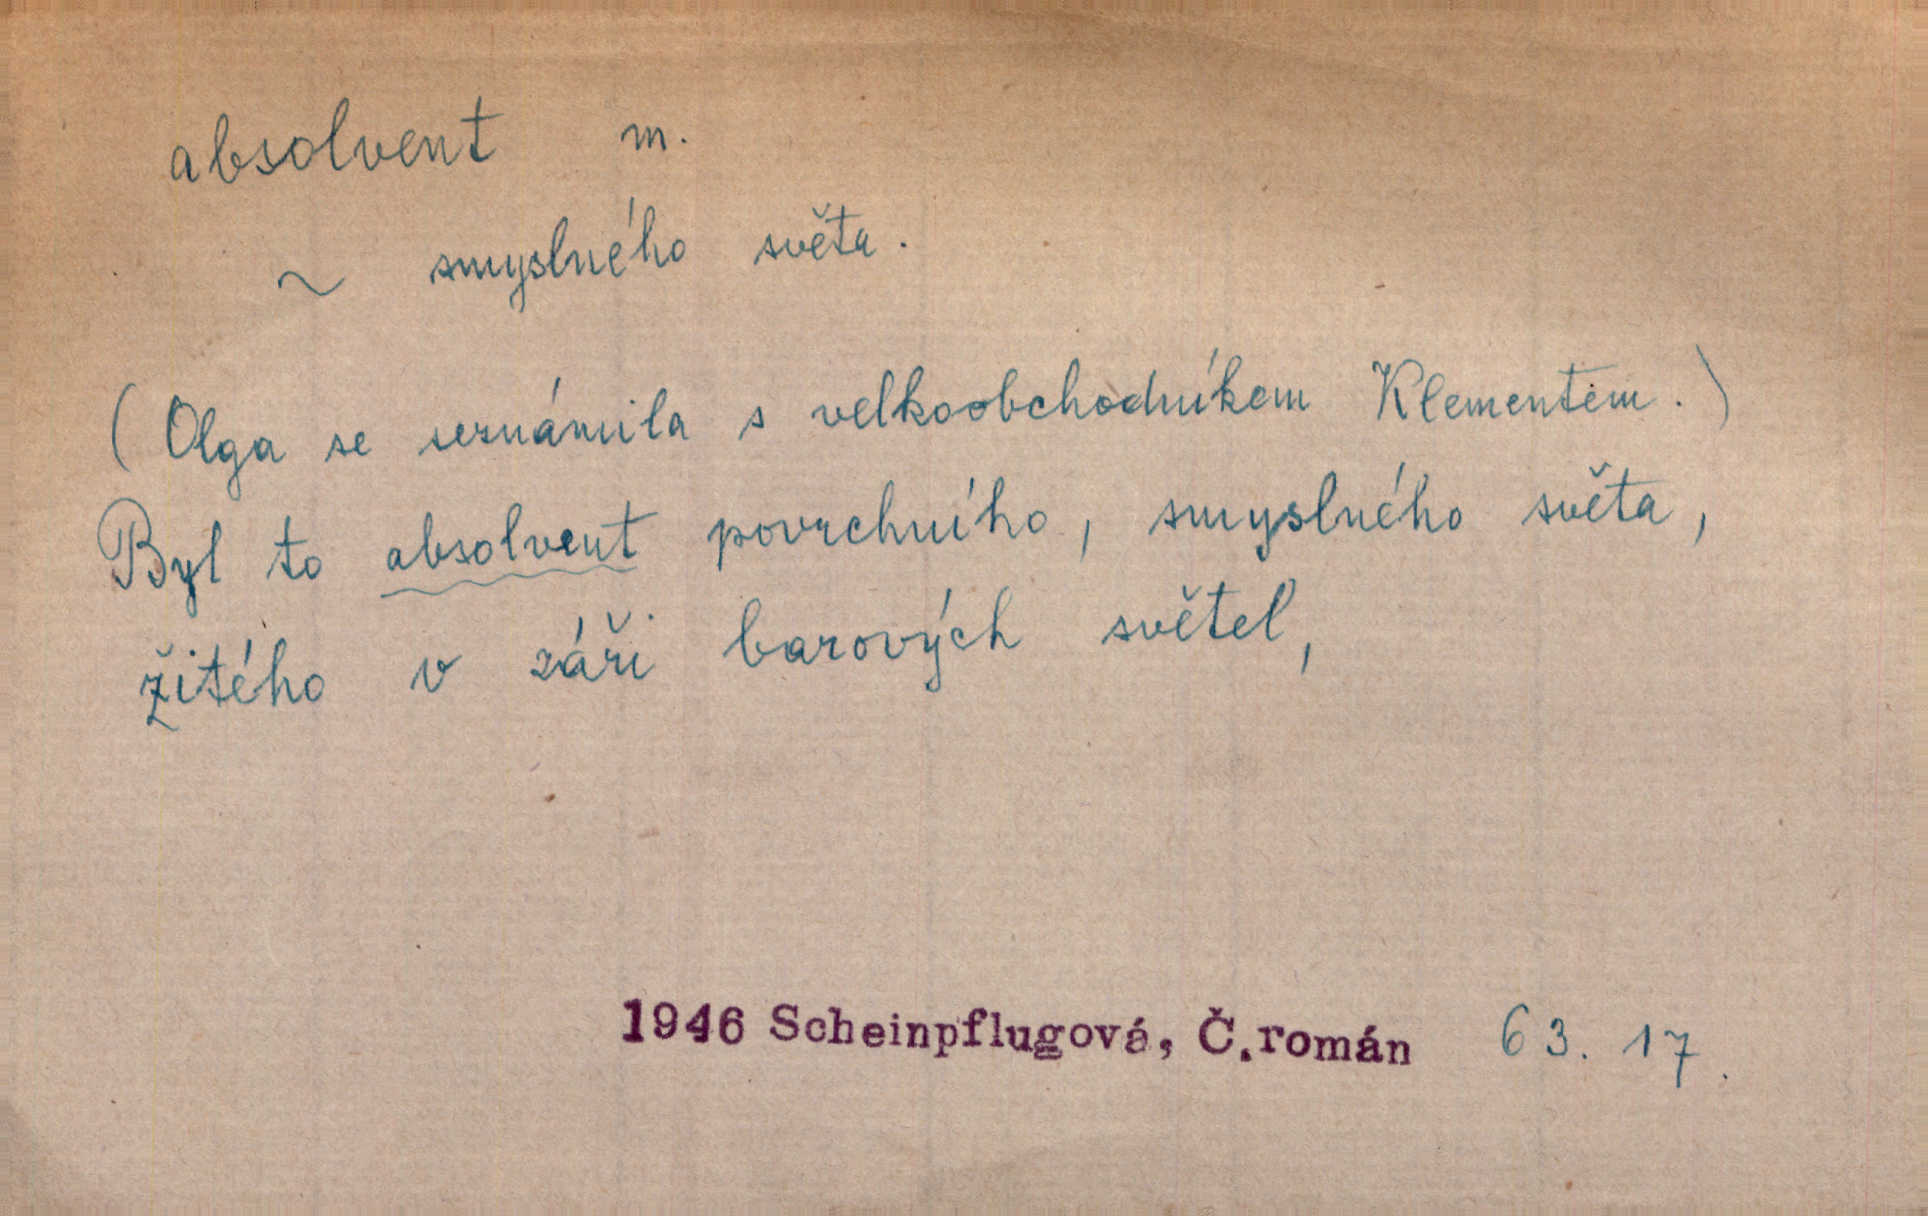 absolvent m.
~ smyslného světa.
(Olga se seznámila s velkoobchodníkem Klementem.)
Byl to absolvent povrchního, smyslného světa,
žitého v záři barových světel,
1946 Scheinpflugová, Č.román 63. 17.